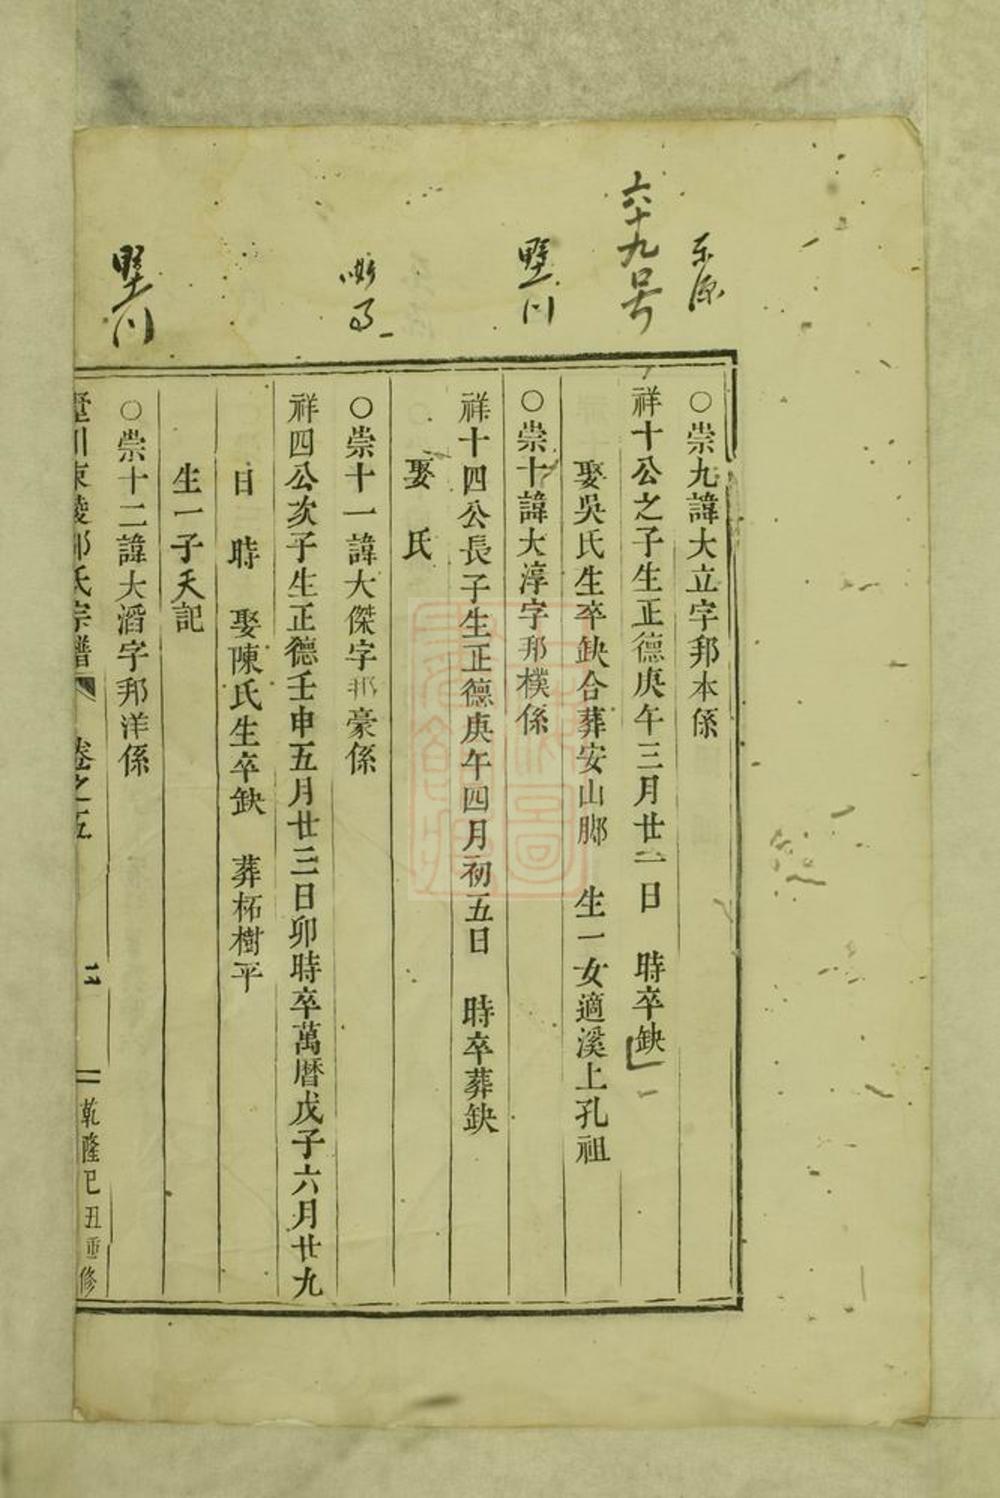 东源
六十九号
墅川
墅川
○崇九諱大立字邦本係
祥十公之子生正德庚午三月廿二日　時卒缺
娶吳氏生卒缺合葬安山脚　生一女適溪上孔祖
○崇十諱大淳字邦樸係
祥十四公長子生正德庚午四月初五日　時卒葬缺
娶　氏
○崇十一諱大傑字邦豪係
祥四公次子生正德壬申五月廿三日卯時卒萬曆戊子六月廿九
日　時　娶陳氏生卒缺　葬柘樹平
生一子天記
○崇十二諱大滔字邦洋係
氏宗譜　卷之五　乾隆己丑重修